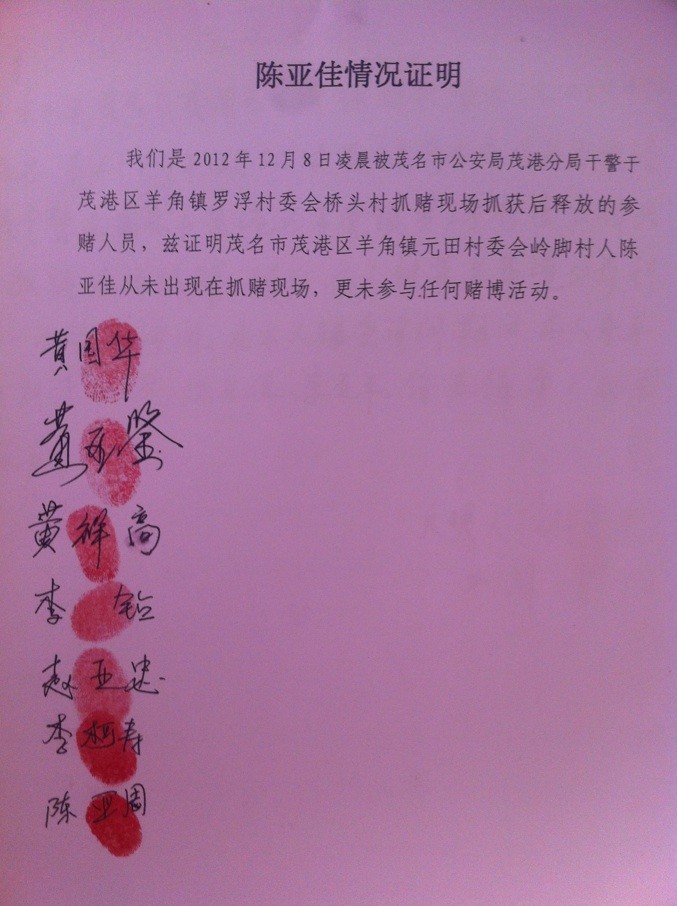 陈亚佳情况证明
我们是2012年12月8日凌晨被茂名市公安局茂港分局干警于
茂港区羊角镇罗浮村委会桥头村抓赌现场抓获后释放的参
赌人员，兹证明茂名市茂港区羊角镇元田村委会岭脚村人陈
亚佳从未出现在抓赌现场，更未参与任何赌博活动。
黄国华
黄亚鉴
黄祥高
李
赵亚忠
李 寿
陈亚周